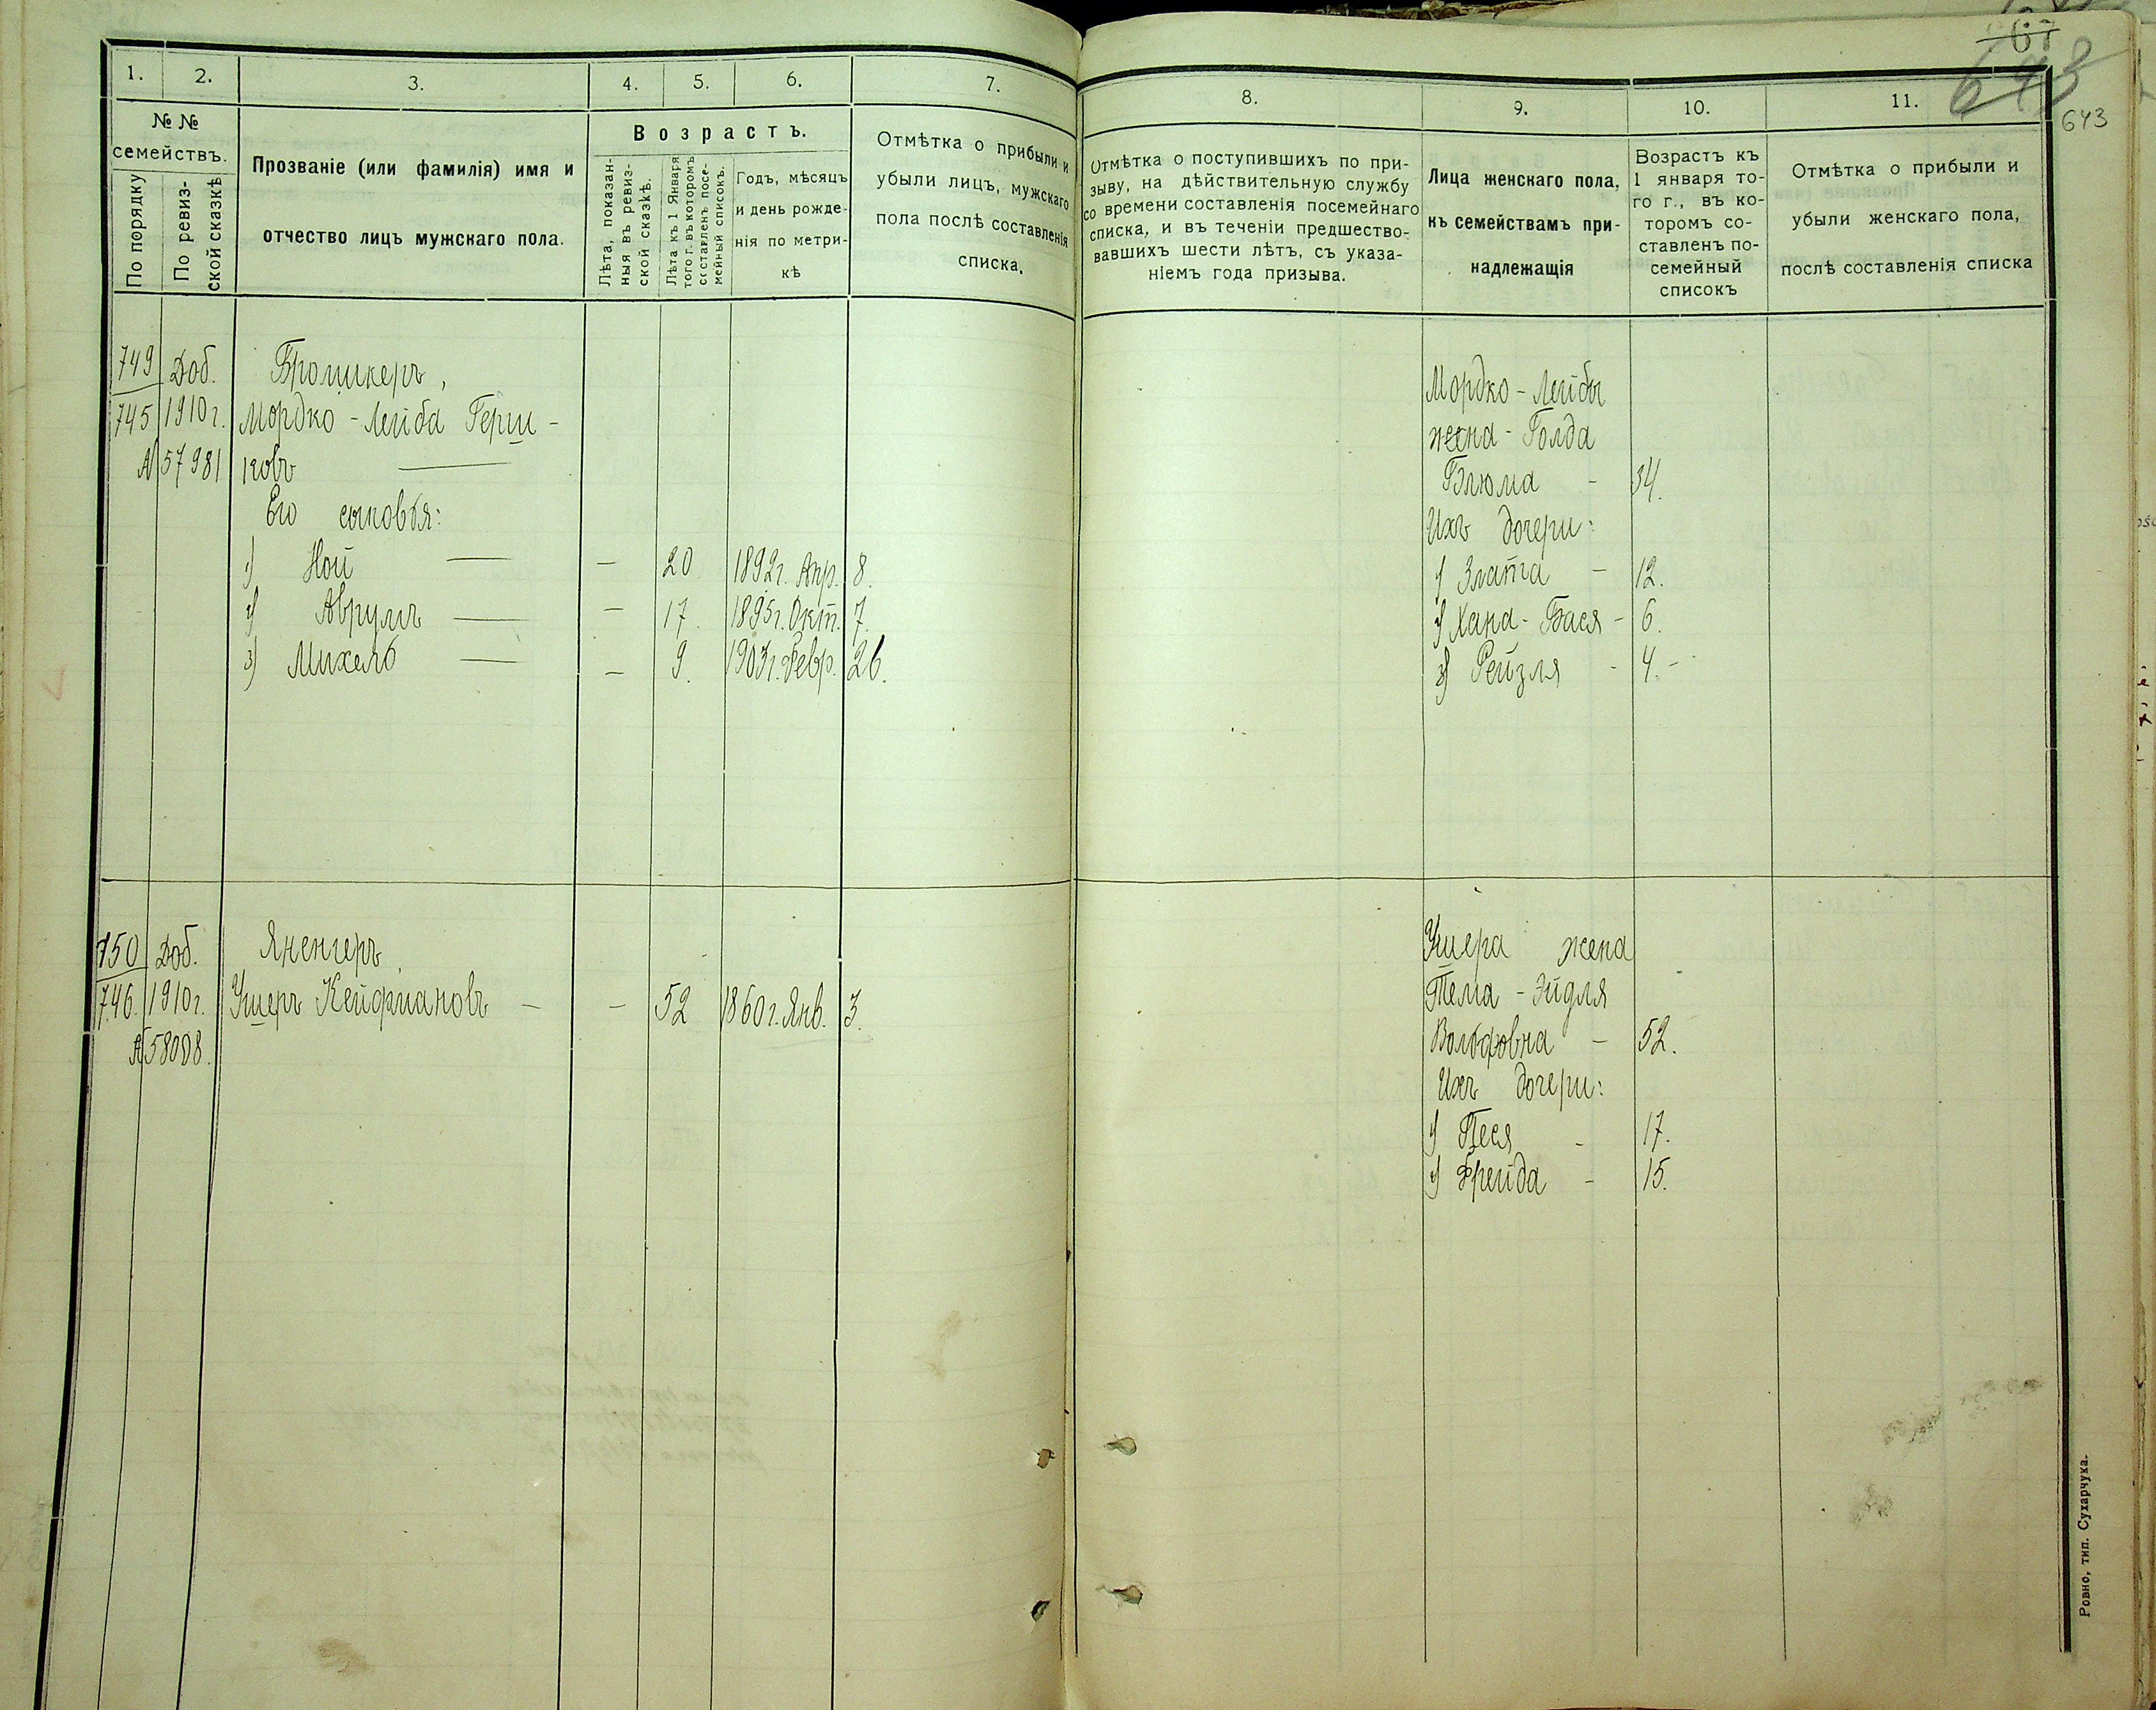 67
643
643
1.
2.
3.
4.
5.
6.
7.
№ №
семействъ.
По порядку
По ревиз-
ской сказкѣ
Прозваніе (или фамилія) имя и
отчество лицъ мужскаго пола.
Возрастъ.
Лѣта, показан-
ныя въ ревиз-
ской сказкѣ.
Лѣта къ 1 Января
того г. въ которомъ
составленъ посе-
мейный списокъ.
Годъ, мѣсяцъ
и день рожде-
нія по метри-
кѣ
Отмѣтка о прибыли и
убыли лицъ, мужскаго
пола послѣ составленія
списка.
749 Доб. Бромикеръ,
745 1910 г. Мордко-Лейба Герш-
А 57981 ковъ —
Его сыновья:
1) Ной — — 20. 1892 г. Апр. 8.
2) Аврумъ — — 17. 1895 г. Окт. 7.
3) Михель — — 9. 1903 г. Февр. 26.
750 Доб.
746. 1910 г. Ушеръ — — 52 1860 г. Янв. 3.
А 58008.
8.
9.
10.
11.
Отмѣтка о поступившихъ по при-
зыву, на дѣйствительную службу
со времени составленія посемейнаго
списка, и въ теченіи предшество-
вавшихъ шести лѣтъ, съ указа-
ніемъ года призыва.
Лица женскаго пола,
къ семействамъ при-
надлежащія
Возрастъ къ
1 января то-
го г., въ ко-
торомъ со-
ставленъ по-
семейный
списокъ
Отмѣтка о прибыли и
убыли женскаго пола,
послѣ составленія списка
Мордко-Лейбы
жена-Голда
Блюма - 34.
Ихъ дочери:
1) Злата - 12.
2) Хана-Бася - 6.
3) Рейзля - 4.-
Ушера жена
Тема-Эйдля
Вольфовна - 52.
Ихъ дочери:
1) Песя - 17.
2) Фрейда - 15.
Ровно, тип. Сухарчука.